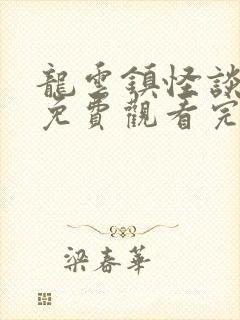 龍雲鎮怪談
免費觀看完
梁春華